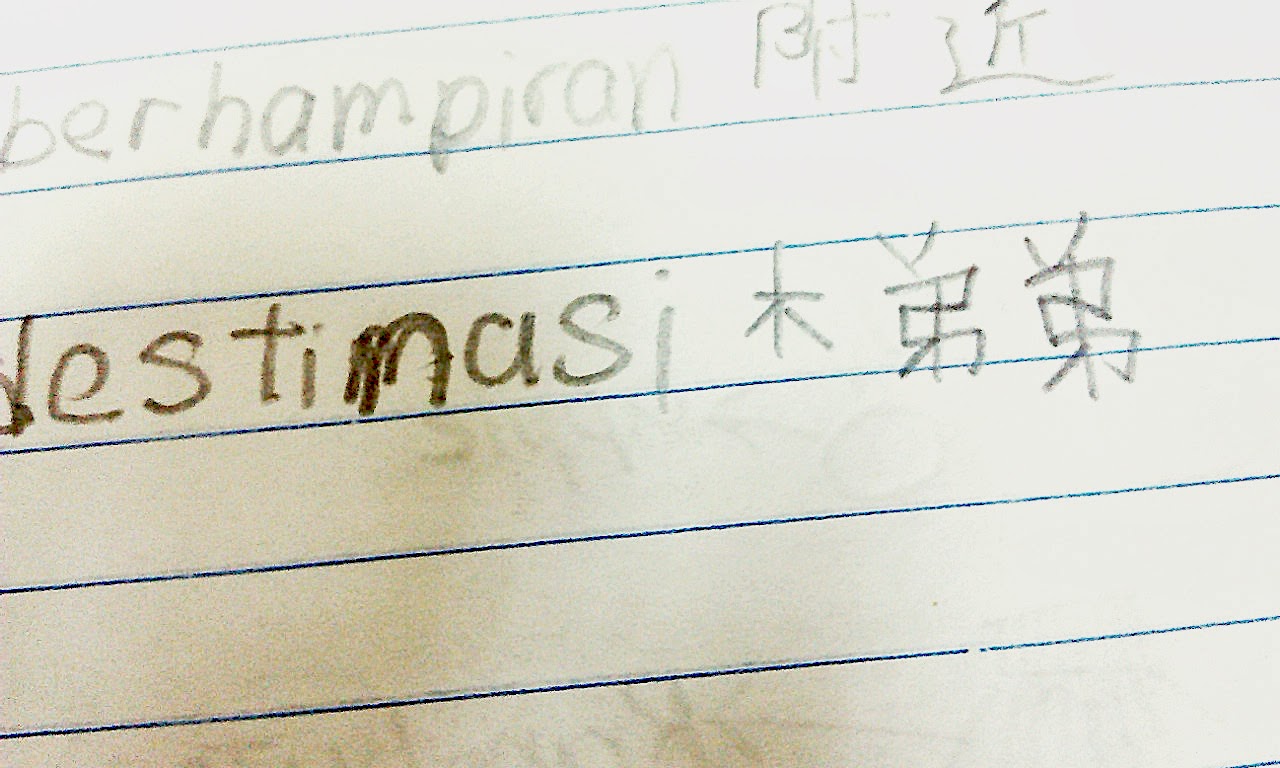 berhampiran 附近
destimasi 木弟弟